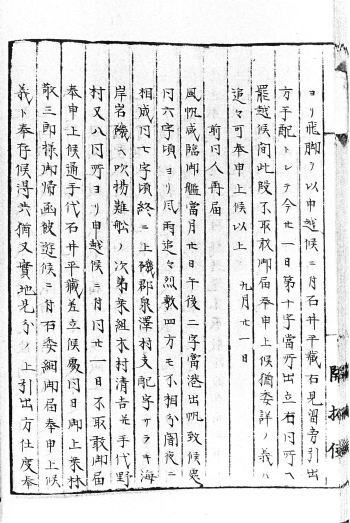 ヨリ飛脚ヲ以申越候ニ付石井平蔵右見留旁引出
方手配トシテ今廿一日第十字当所出立右同所ヘ
罷越候間此段不取敢御届奉申上候猶委詳ノ義ハ
追々可奉申上候以上
九月廿一日
前同人再届
風帆咸臨御艦當月廿日午後二字當港出帆致候処
同六字頃ヨリ風雨追々烈敷四方モ不相分闇夜ニ
相成同七字頃終ニ上磯郡泉澤村支配字サラキ海
岸岩磯ヘ吹揚難船ノ次第乗組木村清吉并手代野
村又八同所ヨリ申越候ニ付同廿一日不取敢御届
奉申上候通手代石井平蔵差立候慶同日御上業林
敬三郎様御帰函被遊候ニ付右委細御届奉申上候
義ト奉存候得共猶又實地見分ノ上引出方仕度奉
開拓使